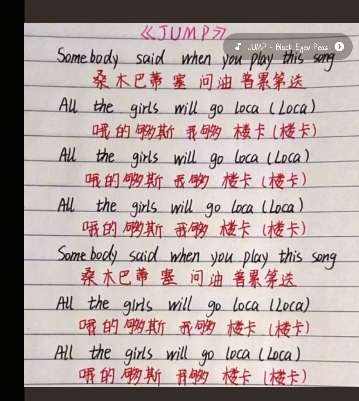 《JUMP》
JUMP - Black Eyed Peas
Somebody said when you play this song
桑木巴蒂 塞 问油 普累第送
All the girls will go loca (Loca)
哦的够斯 我够 楼卡 (楼卡)
All the girls will go loca (Loca)
哦的够斯 我够 楼卡 (楼卡)
All the girls will go loca (Loca)
哦的够斯 我够 楼卡 (楼卡)
Somebody said when you play this song
桑木巴蒂 塞 问油 普累第送
All the girls will go loca (Loca)
哦的够斯 我够 楼卡 (楼卡)
All the girls will go loca (Loca)
哦的够斯 我够 楼卡 (楼卡)